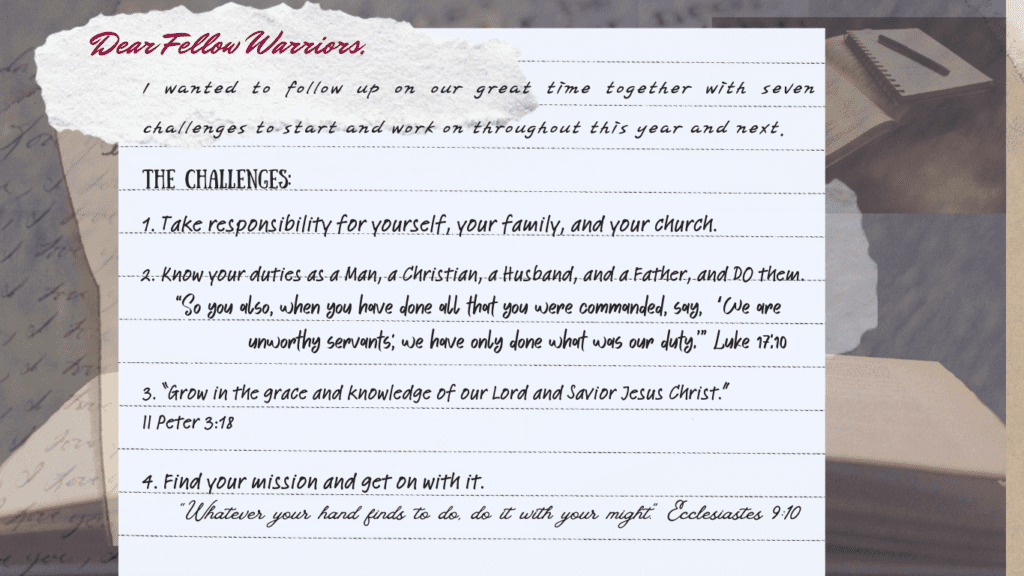 Dear Fellow Warriors,
I wanted to follow up on our great time together with seven
challenges to start and work on throughout this year and next.
THE CHALLENGES:
1. Take responsibility for yourself, your family, and your church.
2. Know your duties as a Man, a Christian, a Husband, and a Father, and DO them.
"So you also, when you have done all that you were commanded, say, 'We are
unworthy servants; we have only done what was our duty.'" Luke 17:10
3. "Grow in the grace and knowledge of our Lord and Savior Jesus Christ."
II Peter 3:18
4. Find your mission and get on with it.
"Whatever your hand finds to do, do it with your might." Ecclesiastes 9:10